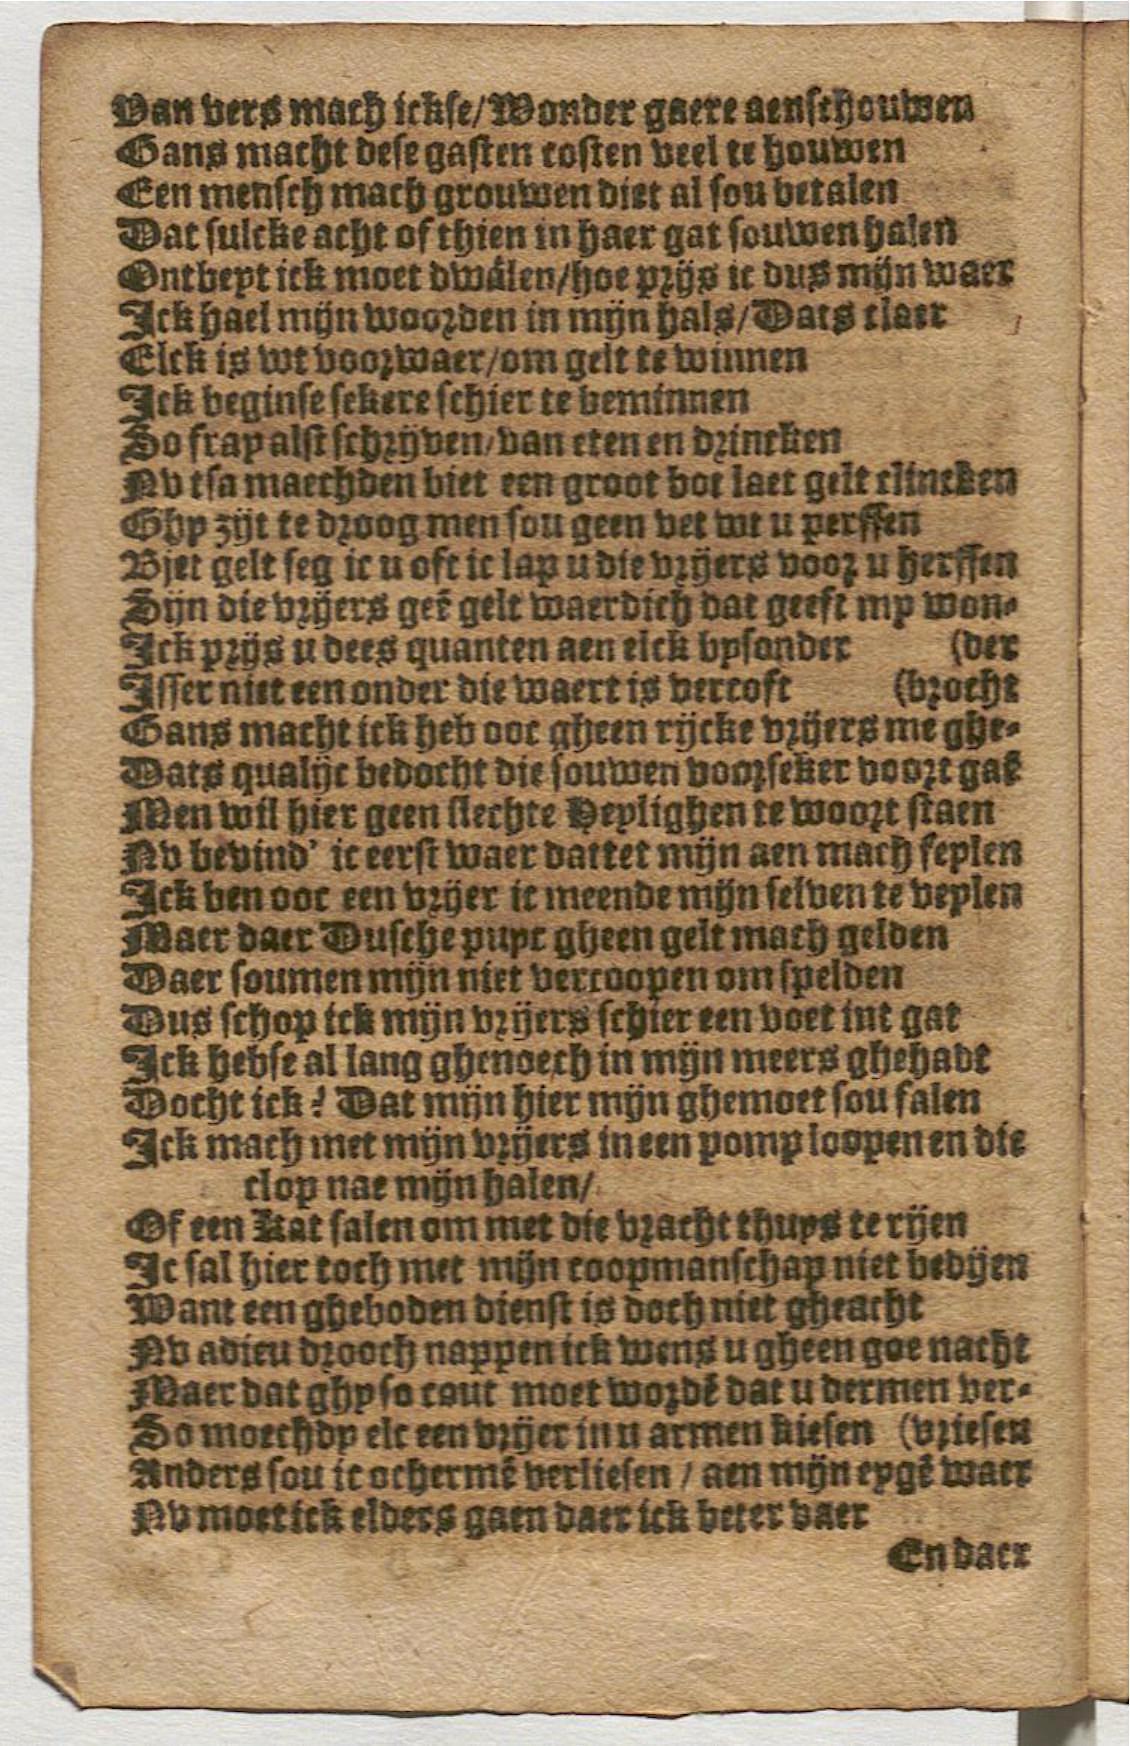 Van vers mach ickse/Wonder gaere aenschouwen
Gans macht dese gasten costen veel te houwen
Een mensch mach grouwen diet al sou betalen
Dat sulcke acht of thien in haer gat souwen halen
Ontbeyt ick moet dwalen/hoe prijs ic dus mijn waer
Ick hael mijn woorden in mijn hals/Dats claer
Elck is wt voorwaer/om gelt te winnen
Ick beginse sekere schier te beminnen
So fray alst schrijven/van eten en drincken
Nv tsa maechden biet een groot bot laet gelt clincken
Ghy zijt te droog men sou geen vet wt u perssen
Bjet gelt seg ic u oft ic lap u die vrijers voor u herssen
Sijn die vrijers geē gelt waerdich dat geeft my won-
Ick prijs u dees quanten aen elck bysonder (der
Isser niet een onder die waert is vercoft (brocht
Gans macht ick heb ooc gheen rijcke vrijers me ghe-
Dats qualijc bedocht die souwen voorseker voort gaē
Men wil hier geen slechte Heylighen te woort staen
Nv bevind' ic eerst waer dattet mijn aen mach feylen
Ick ben ooc een vrijer ic meende mijn selven te veylen
Maer daer Dusche puyc gheen gelt mach gelden
Daer soumen mijn niet vercoopen om spelden
Dus schop ick mijn vrijers schier een voet int gat
Ick hebse al lang ghenoech in mijn meers ghehadt
Docht ick? Dat mijn hier mijn ghemoet sou falen
Ick mach met mijn vrijers in een pomp loopen en die
clop nae mijn halen/
Of een Kat salen om met die vracht thuys te rijen
Ic sal hier toch met mijn coopmanschap niet bedijen
Want een gheboden dienst is doch niet gheacht
Nv adieu drooch nappen ick wens u gheen goe nacht
Maer dat ghy so cout moet wordē dat u dermen ver-
So moechdy elc een vrijer in u armen kiesen (vriesen
Anders sou ic ochermē verliesen / aen mijn eygē waer
Nv moet ick elders gaen daer ick beter vaer
En daer